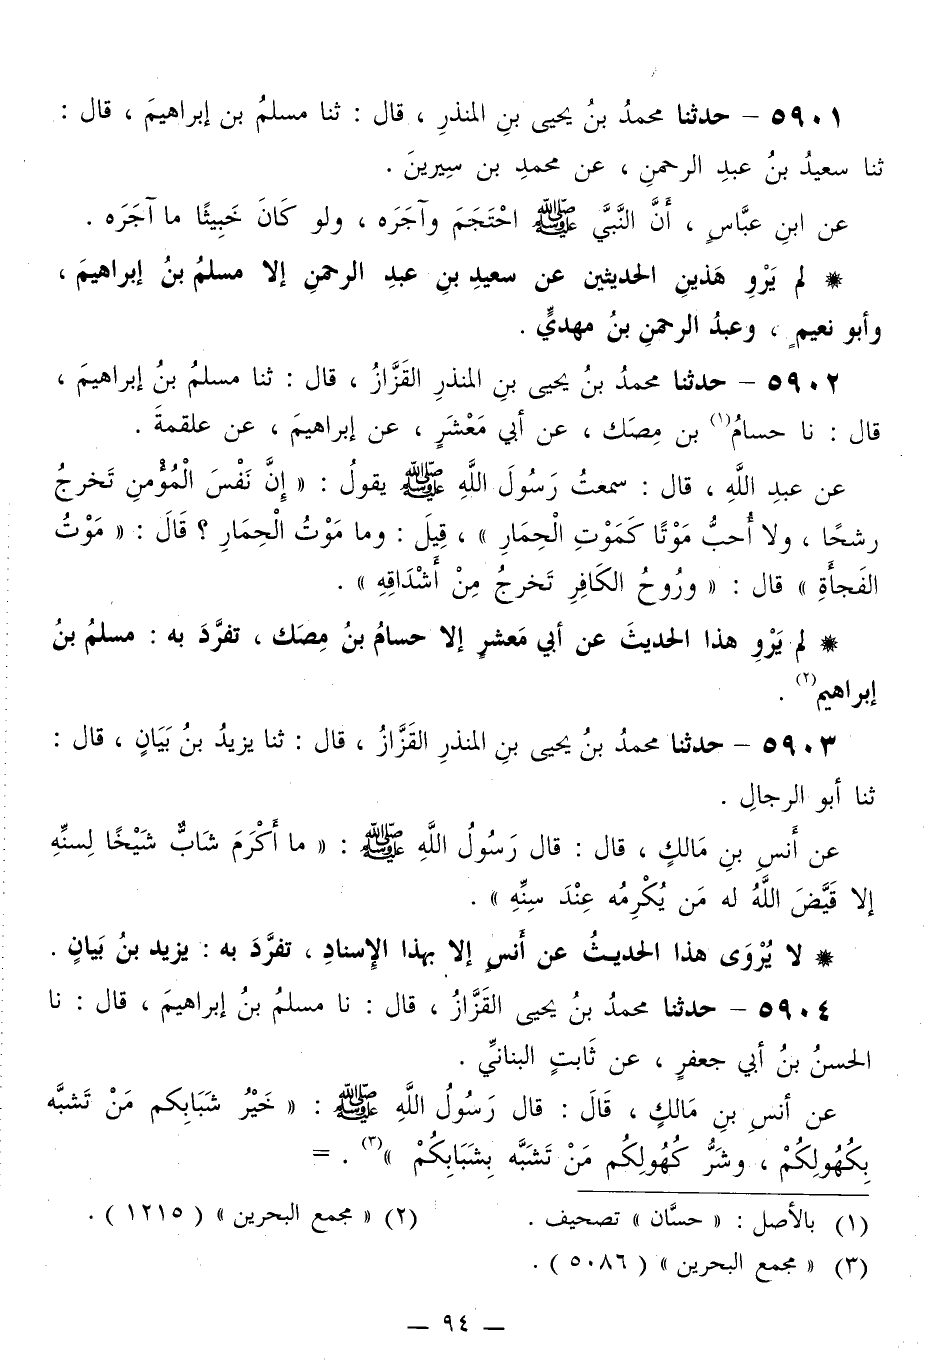 ٥٩٠١ – حدثنا محمدُ بنُ يحيى بنِ المنذرِ ، قال : ثنا مسلمُ بن إبراهيمَ ، قال :
ثنا سعيدُ بنُ عبدِ الرحمنِ ، عن محمدِ بن سِيرينَ .
عن ابنِ عبَّاسٍ ، أَنَّ النَّبيَّ ﷺ احْتَجَمَ وآجَرَه ، ولو كَانَ خَبِيثًا ما آجَرَه .
* لم يَرْوِ هَذينِ الحديثين عن سعيدِ بنِ عبدِ الرحمنِ إلا مسلمُ بنُ إبراهيمَ ،
وأبو نعيمٍ ، وعبدُ الرحمنِ بنُ مهديٍّ .
٥٩٠٢ – حدثنا محمدُ بنُ يحيى بنِ المنذرِ القَزَّازُ ، قال : ثنا مسلمُ بنُ إبراهيمَ ،
قال : نا حسامُ(١) بن مِصَك ، عن أبي مَعْشَرٍ ، عن إبراهيمَ ، عن علقمةَ .
عن عبدِ اللَّهِ ، قال : سمعتُ رَسُولَ اللَّهِ ﷺ يقولُ : « إِنَّ نَفْسَ الْمُؤْمنِ تَخرجُ
رشحًا ، ولا أُحبُّ مَوْتًا كَمَوْتِ الْحِمَارِ » ، قِيلَ : وما مَوْتُ الْحِمَارِ ؟ قَالَ : « مَوْتُ
الفَجأَةِ » قال : « ورُوحُ الكَافِرِ تَخرجُ مِنْ أَشْدَاقِهِ » .
* لم يَرْوِ هذا الحديثَ عن أبي مَعشرٍ إلا حسامُ بنُ مِصَك ، تفرَّدَ به : مسلمُ بنُ
إبراهيم(٢) .
٥٩٠٣ – حدثنا محمدُ بنُ يحيى بنِ المنذرِ القَزَّازُ ، قال : ثنا يزيدُ بنُ بَيَانٍ ، قال :
ثنا أبو الرجالِ .
عن أَنسِ بنِ مَالكٍ ، قال : قال رَسُولُ اللَّهِ ﷺ : « ما أَكْرَمَ شَابٌّ شَيْخًا لِسنِّهِ
إلا قَيَّضَ اللَّهُ له مَن يُكْرِمُه عِنْدَ سِنِّهِ » .
* لا يُرْوَى هذا الحديثُ عن أَنسٍ إلا بهذا الإِسنادِ ، تفرَّدَ به : يزيد بنُ بَيانٍ .
٥٩٠٤ – حدثنا محمدُ بنُ يحيى القَزَّازُ ، قال : نا مسلمُ بنُ إبراهيمَ ، قال : نا
الحسنُ بنُ أبي جعفرٍ ، عن ثَابتٍ البنانيِّ .
عن أنس بنِ مَالكٍ ، قَالَ : قال رَسُولُ اللَّهِ ﷺ : « خَيْرُ شَبَابِكم مَنْ تَشبَّه
بِكُهُولِكُمْ ، وشَرُّ كُهُولِكُم مَنْ تَشَبَّه بِشَبَابِكُمْ »(٣) . =
(١) بالأصل : « حسَّان » تصحيف . (٢) « مجمع البحرين » ( ١٢١٥ ) .
(٣) « مجمع البحرين » ( ٥٠٨٦ ) .
– ٩٤ –